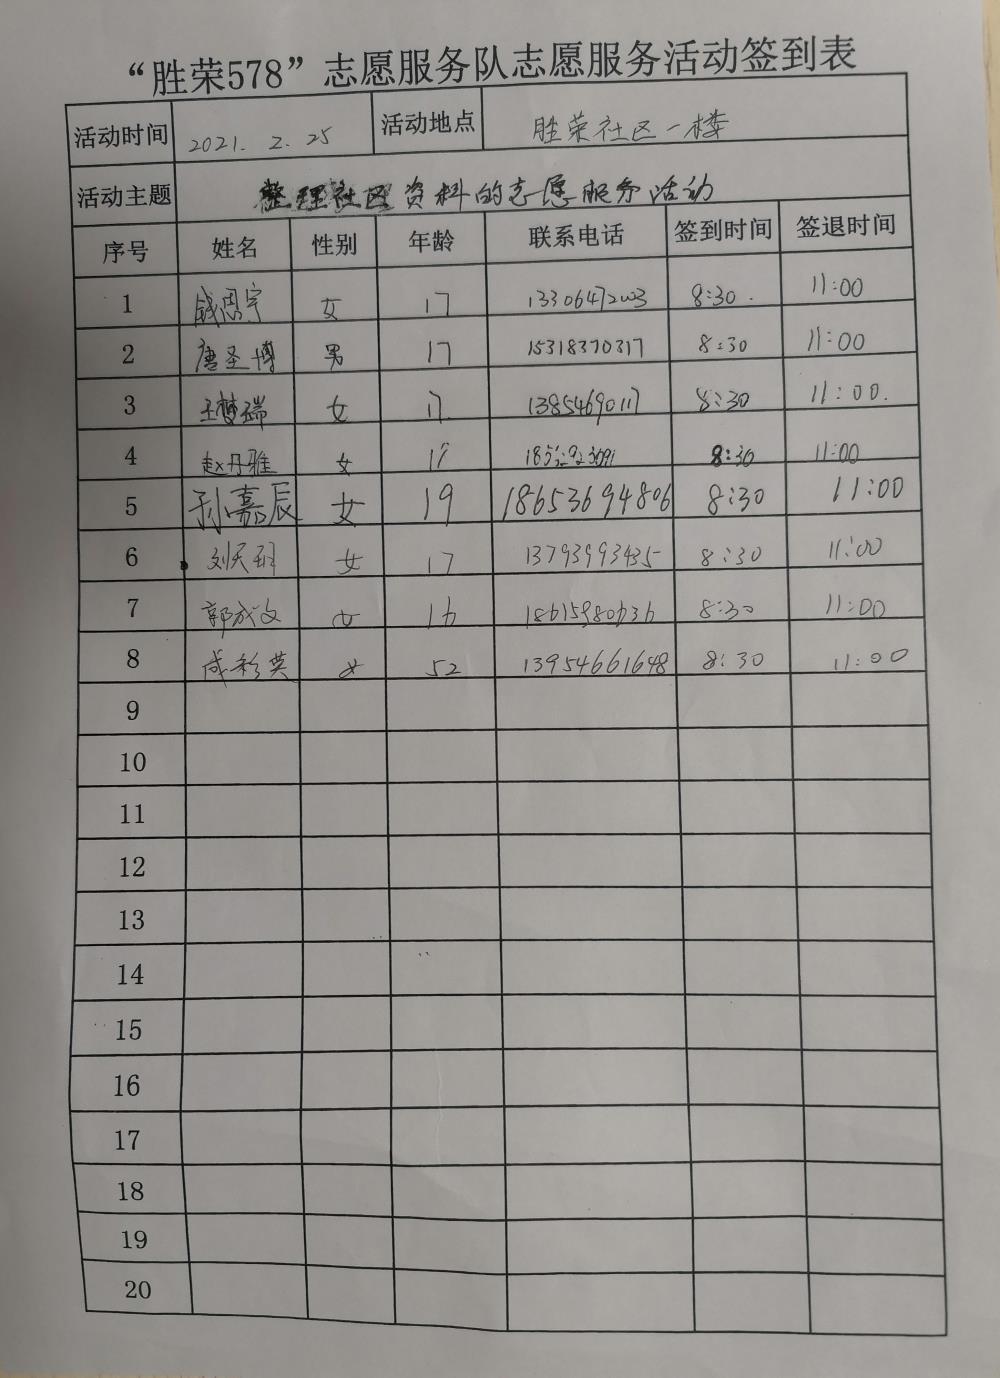 “胜荣578”志愿服务队志愿服务活动签到表
活动时间 2021. 2. 25 活动地点 胜荣社区一楼
活动主题 整理社区资料的志愿服务活动
序号 姓名 性别 年龄 联系电话 签到时间 签退时间
1 钱思宇 女 17 13306472003 8:30. 11:00
2 唐圣博 男 17 15318370317 8:30 11:00
3 王梦瑞 女 17. 13854690117 8:30 11:00.
4 赵丹雅 女 8:30 11:00
5 孙嘉辰 女 19 18653694806 8:30 11:00
6 刘天 女 17 13793993435 8:30 11:00
7 郭成文 女 16 18615980636 8:30 11:00
8 成彩英 女 52 13954661648 8:30 11:00
9
10
11
12
13
14
15
16
17
18
19
20